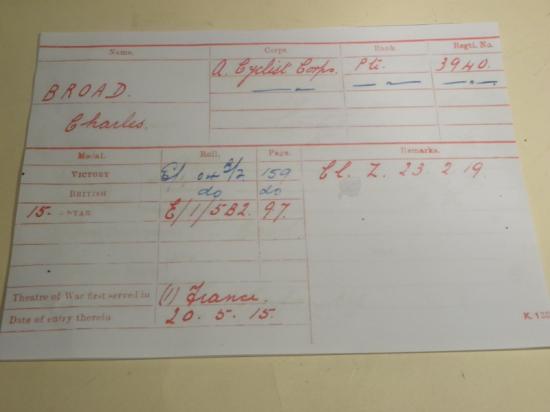 Name. Corps. Rank. Regtl. No.
BROAD. A. Cyclist Corps. Pte. 3940.
Charles.
Medal. Roll. Page. Remarks.
VICTORY 159 Cl. Z. 23 2 19.
BRITISH do do
15- STAR E/1/5B2. 97.
Theatre of War first served in (1) France.
Date of entry therein 20. 5. 15.